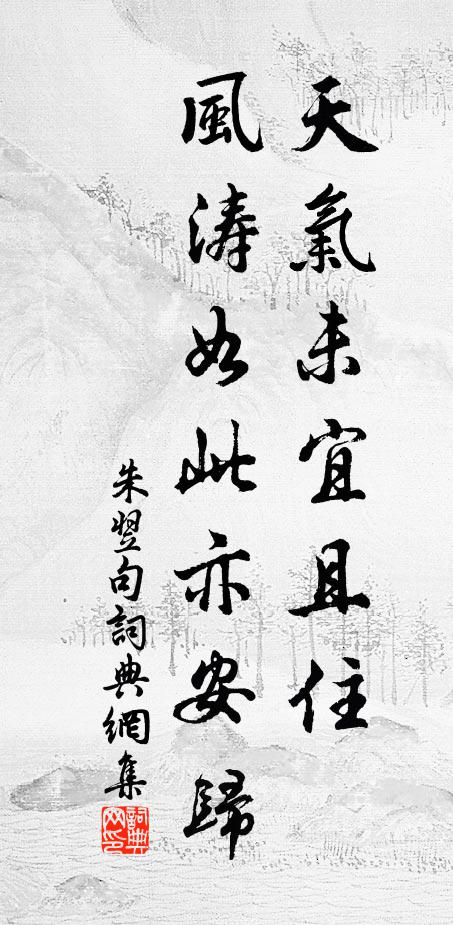 天氣未宜且住
風濤如此亦安歸
朱翌句詞典網集
詞典網印